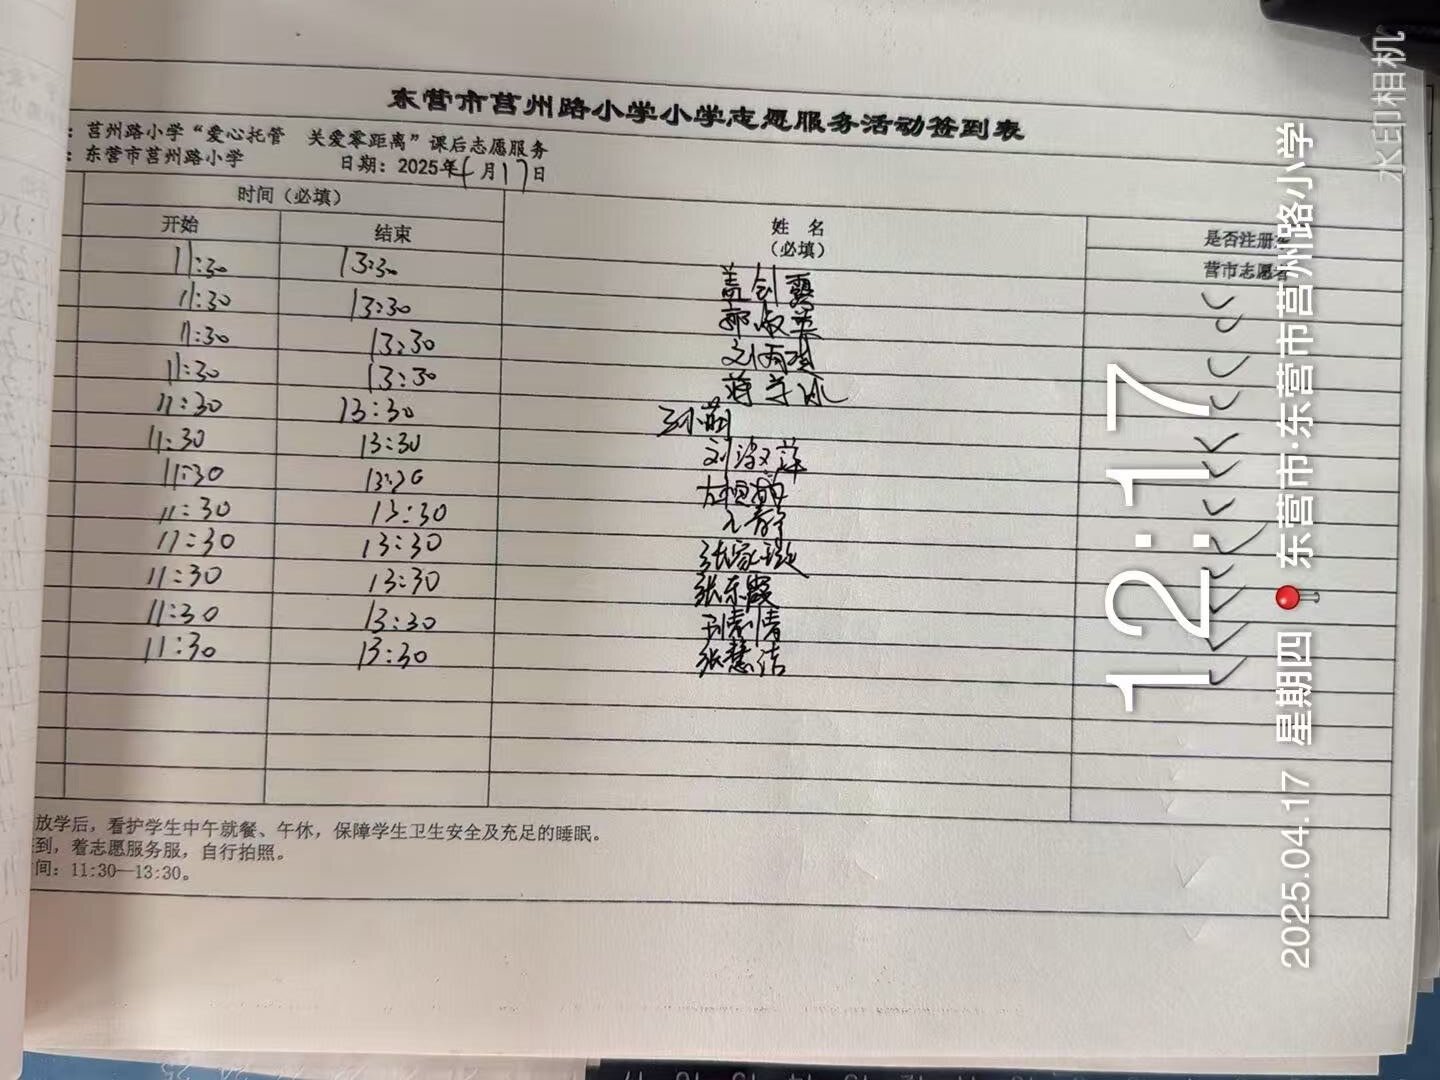 东营市莒州路小学小学志愿服务活动签到表
：莒州路小学“爱心托管 关爱零距离”课后志愿服务
：东营市莒州路小学 日期：2025年4月17日
时间（必填）
开始 结束
姓 名
（必填）
是否注册东
营市志愿者
11:30 13:30 盖剑霞
11:30 13:30
11:30 13:30
11:30 13:30
11:30 13:30 王小萌
11:30 13:30 刘淑萍
11:30 13:30
11:30 13:30
11:30 13:30
11:30 13:30 张东霞
11:30 13:30
11:30 13:30 张慧洁
放学后，看护学生中午就餐、午休，保障学生卫生安全及充足的睡眠。
到，着志愿服务服，自行拍照。
间：11:30—13:30。
12:17
2025.04.17 星期四 东营市·东营市莒州路小学
水印相机